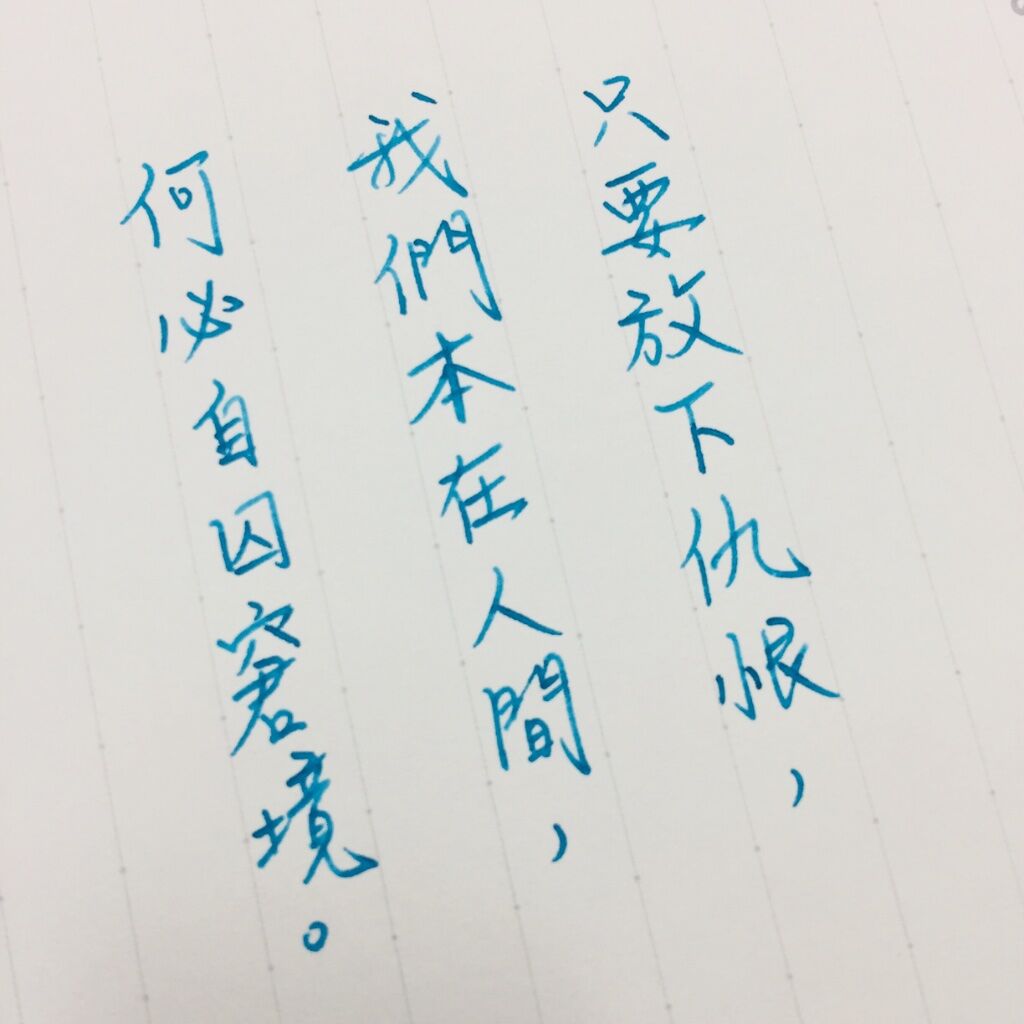 只要放下仇恨，
我們本在人間，
何必自囚窘境。